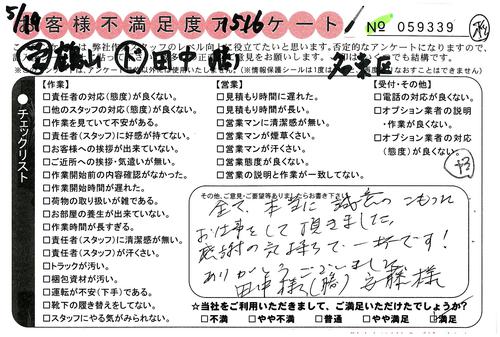 5/19
お客様不満足度アンケート!
1516
No 059339
田中 (勝)
チェックリスト
【作業】
□責任者の対応(態度)が良くない。
□他のスタッフの対応(態度)が良くない。
□作業を見ていて不安がある。
□責任者(スタッフ)に好感が持てない。
□お客様への挨拶が出来ていない。
□ご近所への挨拶・気遣いが無い。
□作業開始前の内容確認がなかった。
□作業開始時間が遅れた。
□荷物の取り扱いが雑である。
□お部屋の養生が出来ていない。
□作業時間が長すぎる。
□責任者(スタッフ)に清潔感が無い。
□責任者(スタッフ)が汗くさい。
□トラックが汚い。
□梱包資材が汚い。
□運転が不安(下手)である。
□靴下の履き替えをしてない。
□スタッフにやる気がみられない。
【営業】
□見積もり時間に遅れた。
□見積もり時間が長い。
□営業マンに清潔感が無い。
□営業マンが煙草くさい。
□営業マンが汗くさい。
□営業態度が良くない。
□営業の説明と作業が一致してない。
【受付・その他】
□電話の対応が良くない。
□オプション業者の説明
・作業が良くない。
□オプション業者の対応
(態度)が良くない。
その他、ご意見・ご要望等ありましたらお書き下さい。
全て、本当に誠意のこもった
お仕事をして頂きました。
感謝の気持ちで一杯です!
ありがとうございました
田中様(勝) 安藤様
☆当社をご利用いただきまして、ご満足いただけたでしょうか?
□不満 □やや不満 □普通 □やや満足 □満足